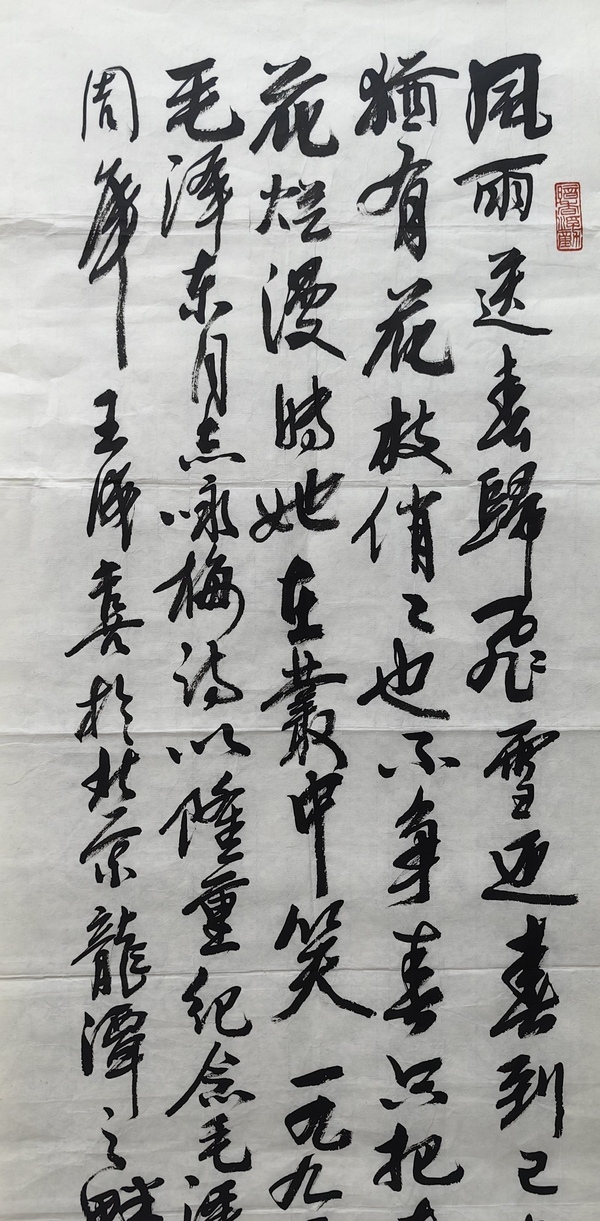 風雨送春歸飛雪迎春到已
猶有花枝俏〻也不争春只把
花爛漫時她在叢中笑 一九九
毛泽东同志咏梅詩以隆重纪念毛泽
周年 王成喜於北京龍潭之畔